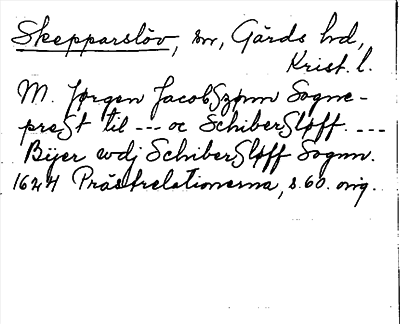 Skepparslöv, sn, Gärds hd,
Krist. l.
M. Jørgen JacobSzønn Sogne-
preSt til --- oc SchiberSløff. ---
Bÿer wdj SchiberSløff Sognn.
1624 Prästrelationerna, s. 60. orig.